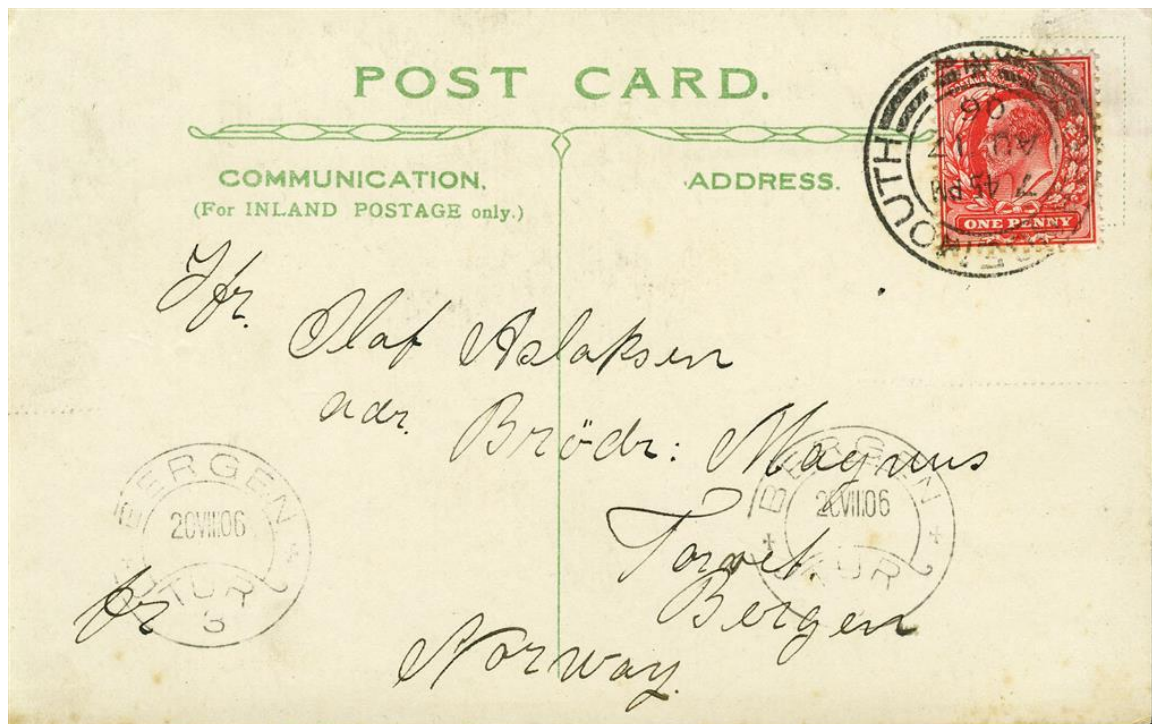 POST CARD.
COMMUNICATION.
(For INLAND POSTAGE only.)
ADDRESS.
7 45 PM
AU 17
06
ONE PENNY
Hr.
Olaf Aslaksen
adr. Brödr: Magnus
Torvet.
Bergen
Norway.
BERGEN
20VIII.06
TUR
3
BERGEN
20VIII.06
TUR